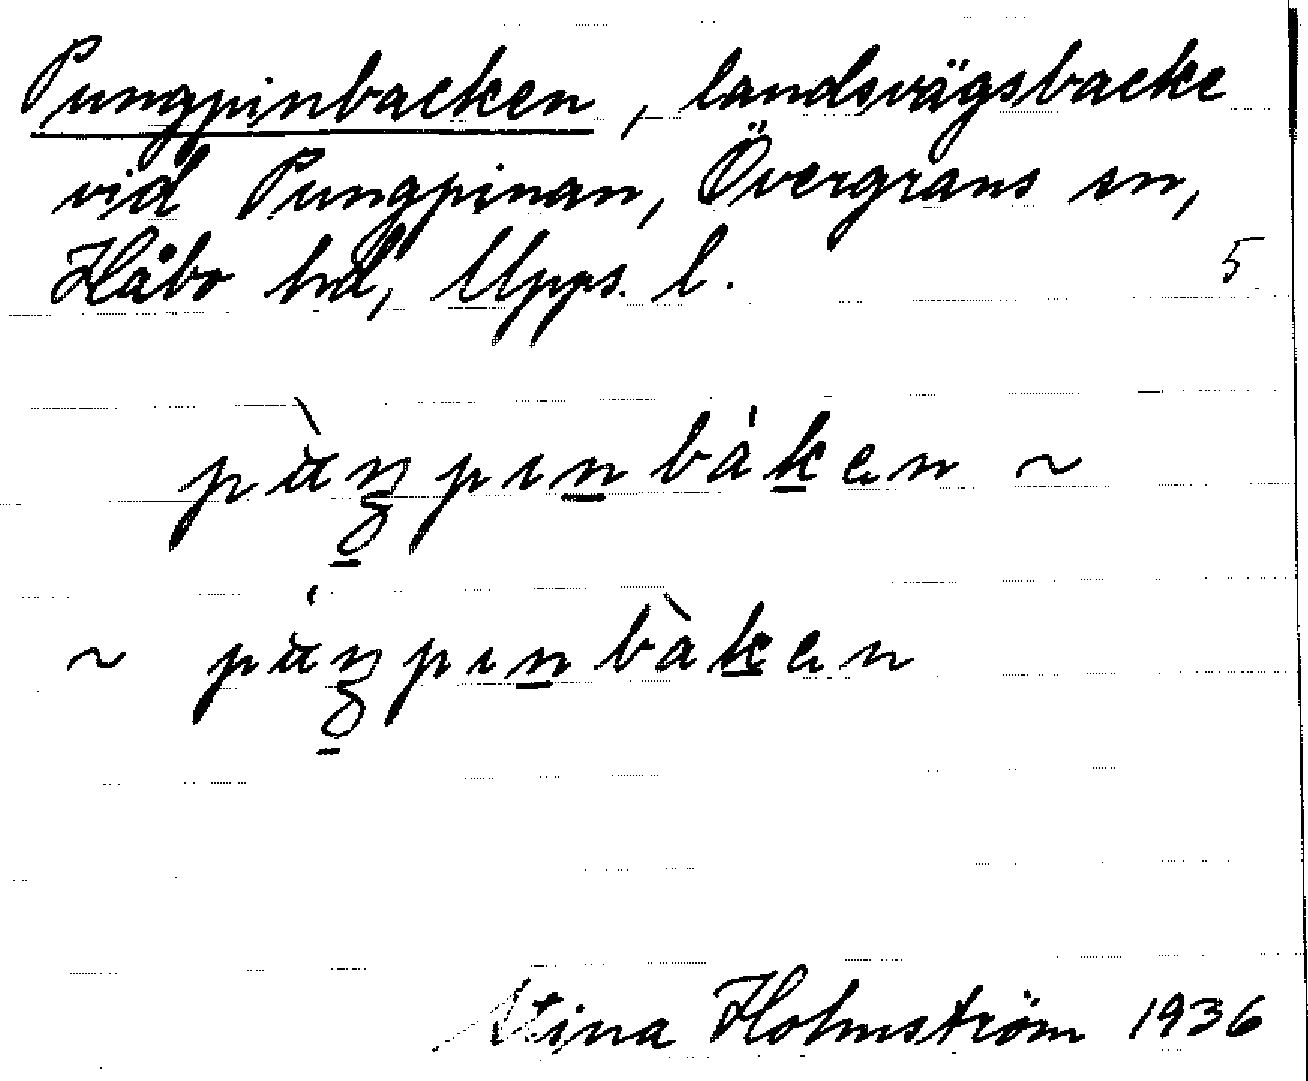 Pungpinbacken, landsvägsbacke
vid Pungpinan, Övergrans sn,
Håbo hd, Upps. l. 5
Stina Holmström 1936